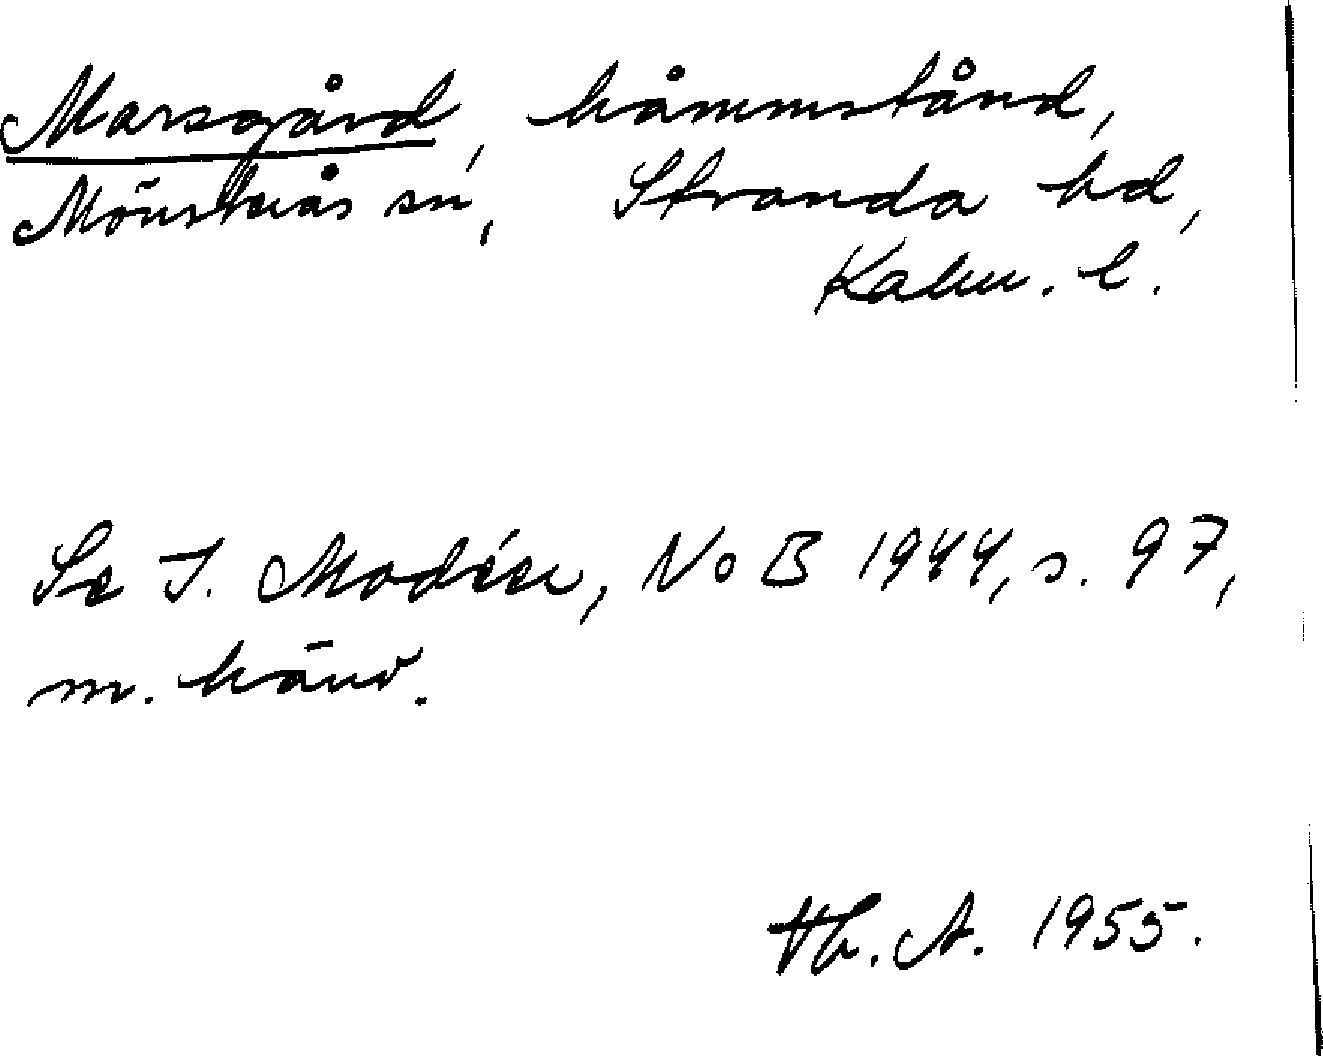 Marsgård, håmmstånd,
Mönsterås sn, Stranda hd,
Kalm. l.
Se I. Modéer, NoB 1944, s. 97,
m. hänv.
Th. A. 1955.